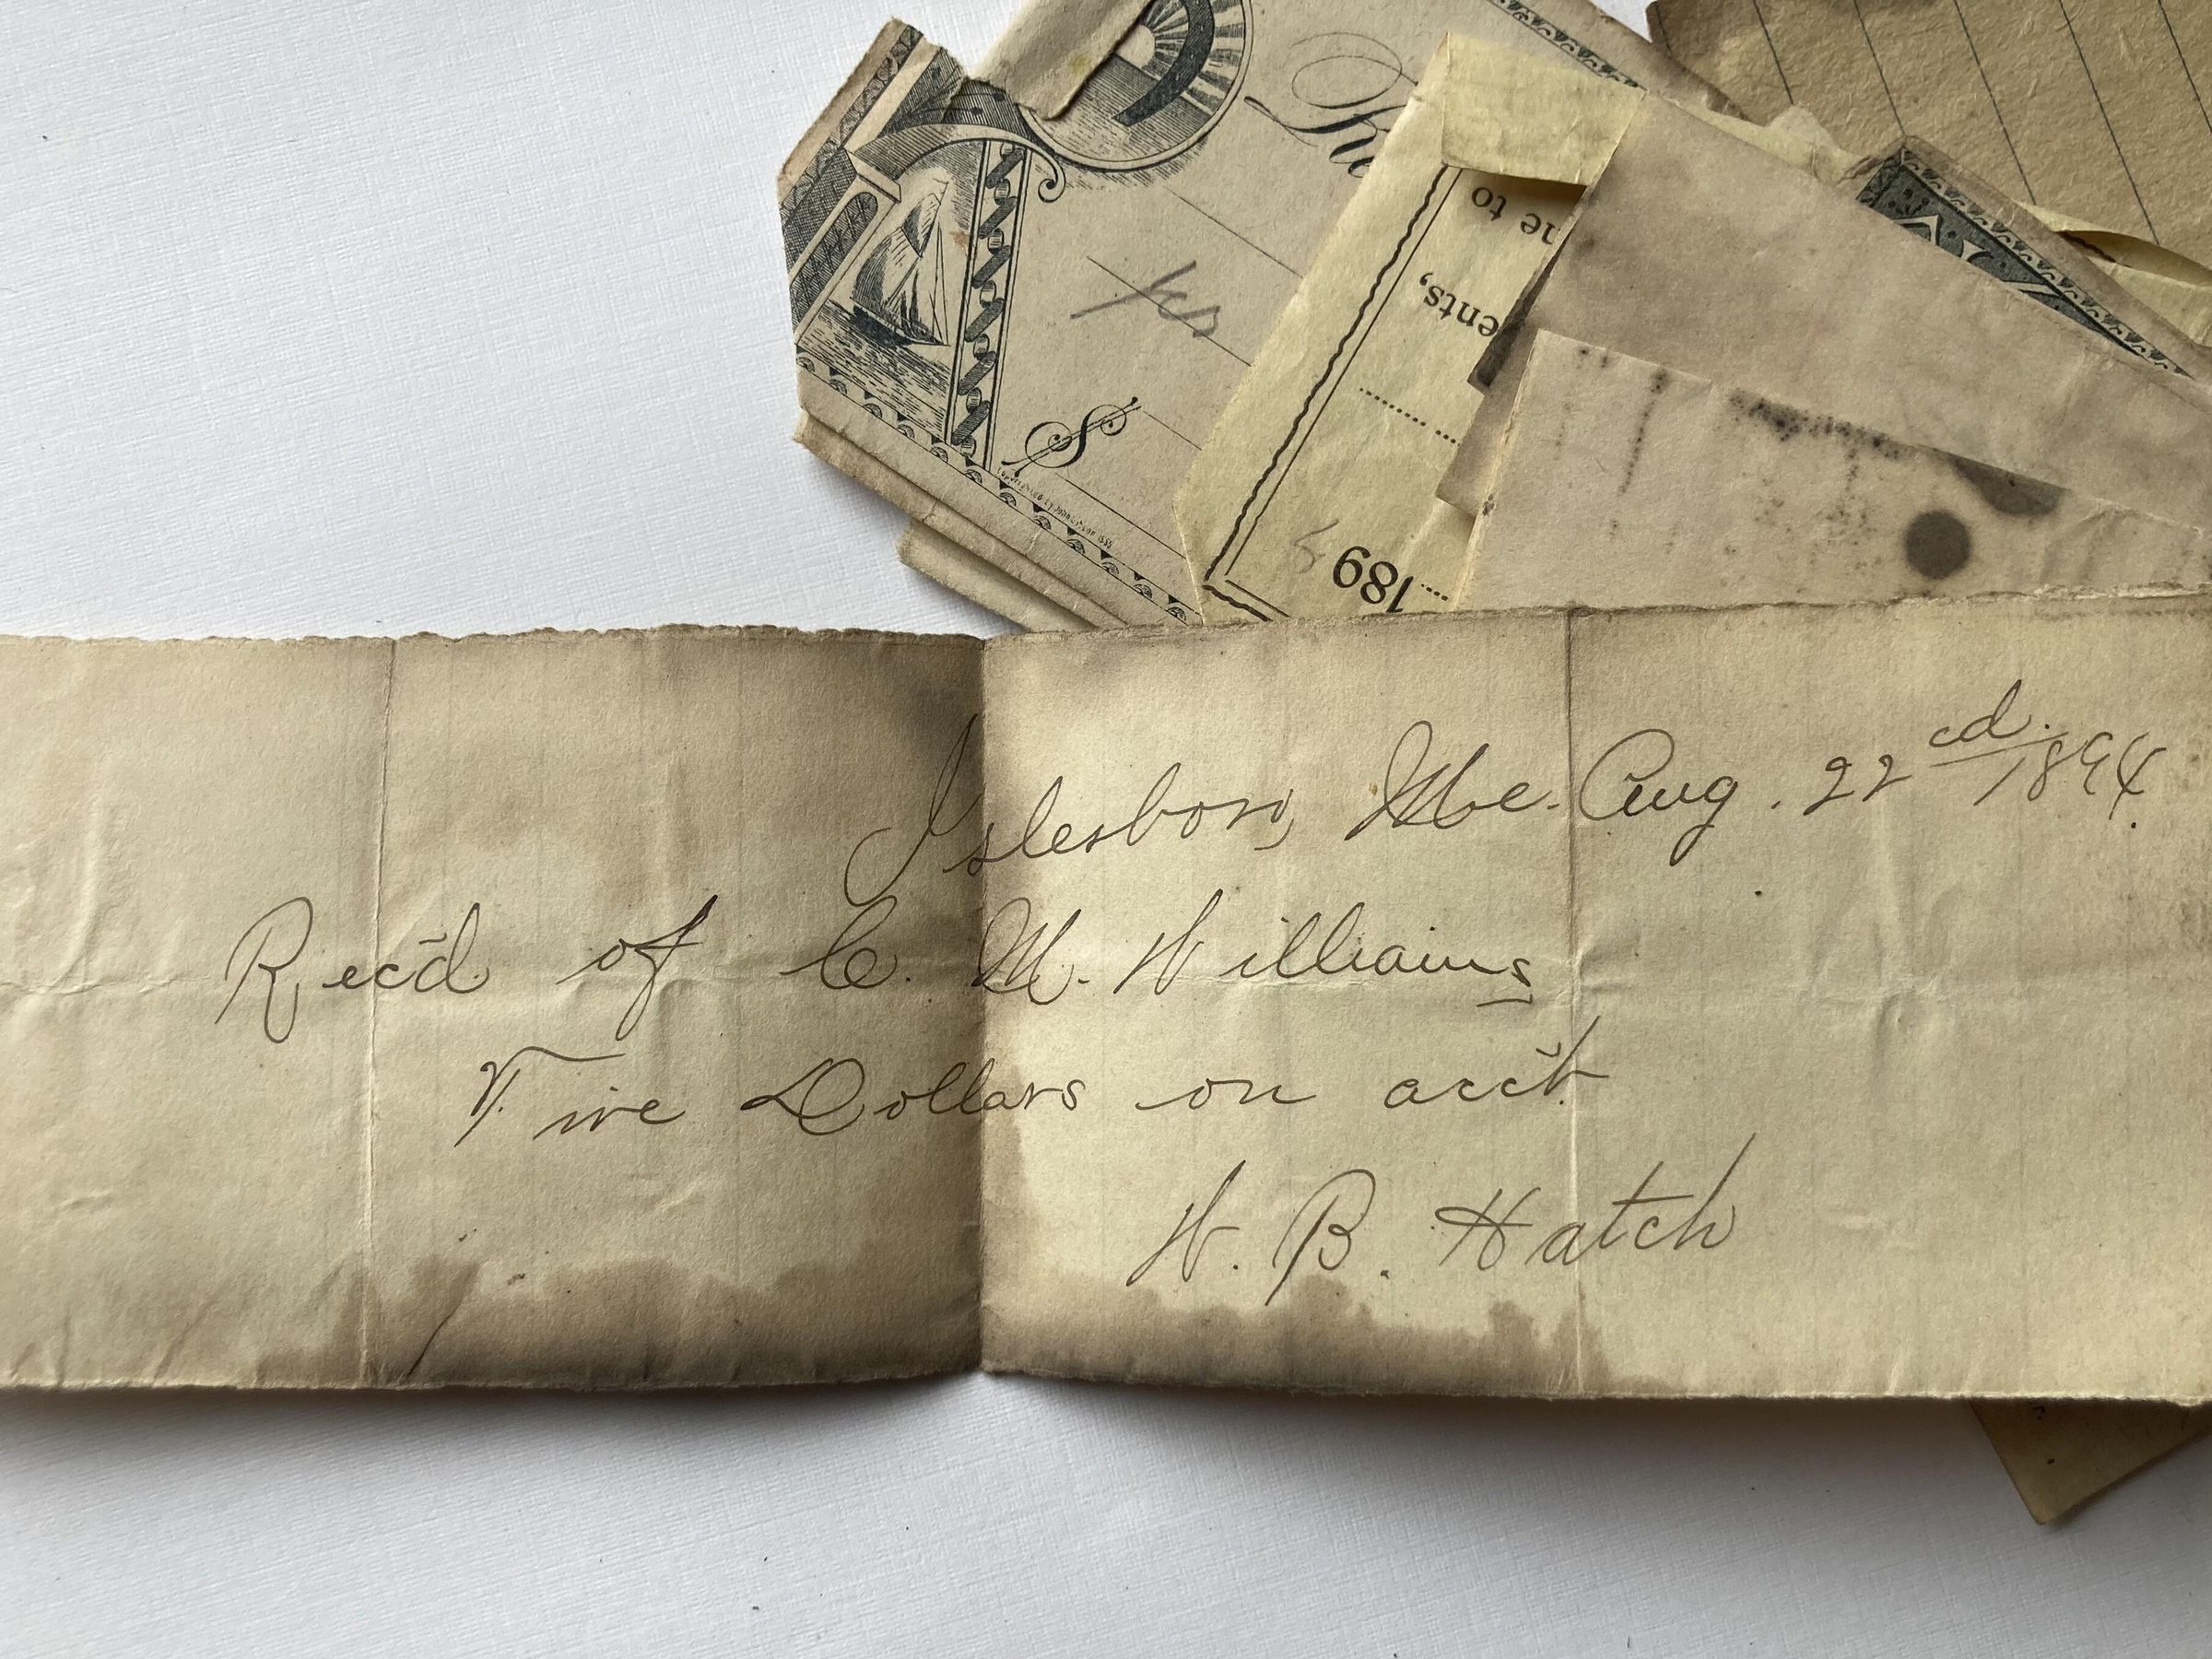 yes
$
ne to
ents,
189
Islesboro, Me. Aug. 22cd. 1894.
Rec'd of C. M. Williams
Five Dollars on acc't.
W. B. Hatch